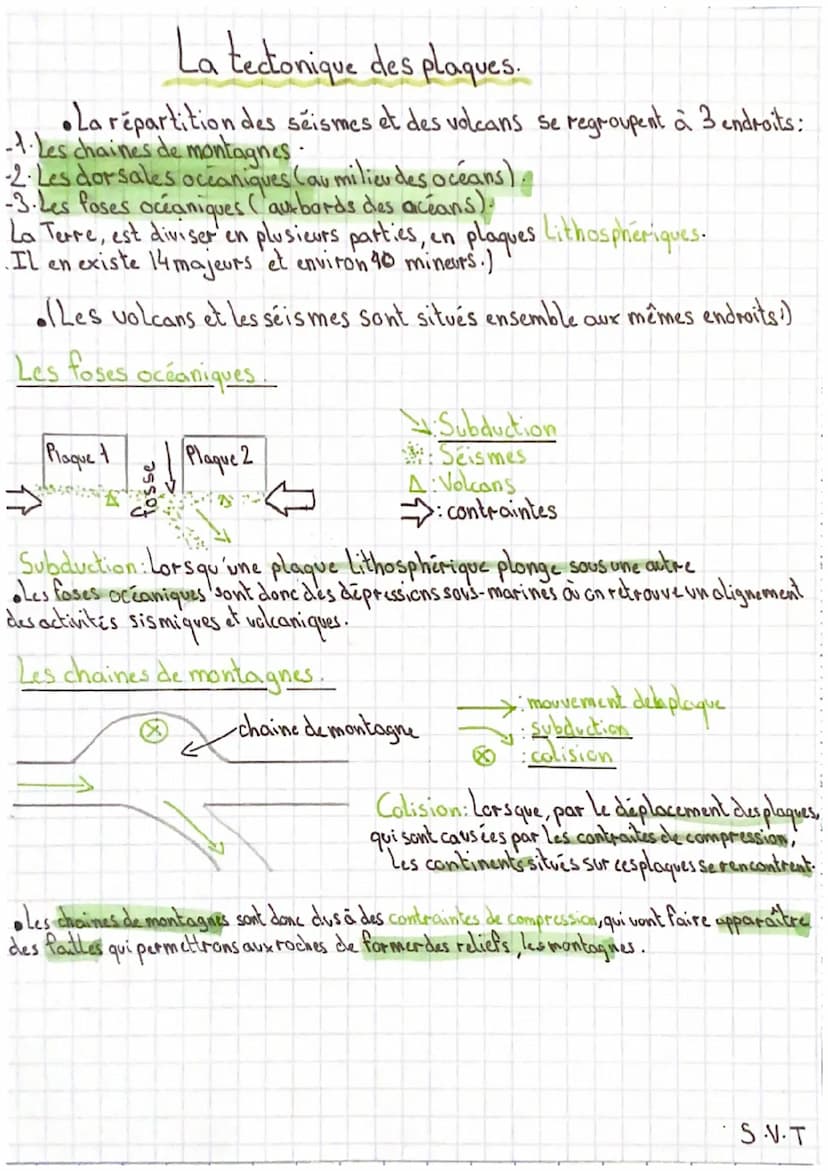 La tectonique des plaques.
• La répartition des séismes et des volcans se regroupent à 3 endroits:
-1. Les chaines de montagnes.
-2. Les dorsales océaniques (au milieu des océans).
-3. Les foses océaniques (aux bords des océans).
La Terre, est diviser en plusieurs parties, en plaques Lithosphériques.
Il en existe 14 majeurs et environ 40 mineurs.)
• (Les volcans et les séismes sont situés ensemble aux mêmes endroits!)
Les foses océaniques.
Plaque 1
fosse
Plaque 2
: Subduction
: Séismes
: Volcans
: contraintes
Subduction: Lorsqu'une plaque Lithosphérique plonge sous une autre
• Les foses océaniques sont donc des dépressions sous-marines où on retrouve un alignement
des activités sismiques et volcaniques.
Les chaines de montagnes.
chaine de montagne
: mouvement de la plaque
: subduction
: colision
Colision: Lorsque, par le déplacement des plaques,
qui sont causées par les contraites de compression,
Les continents situés sur ces plaques se rencontrent.
• Les chaines de montagnes sont donc dus à des contraintes de compression, qui vont faire apparaître
des failles qui permettrons aux roches de former des reliefs, les montagnes.
S.V.T